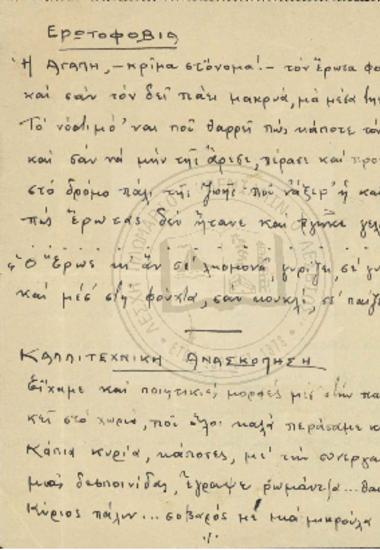 Ερωτοφοβία
Ἡ Αγάπη, – κρίμα στὄνομα! – τὸν ἔρωτα φο
καὶ σὰν τὸν δεῖ πάει μακρυά, μὰ μέσα της
Τὸ νόστιμό ναι ποὺ θαρρεῖ πὼς κάποτε τὸν
καὶ σὰν νὰ μὴν τῆς ἄρεσε, πέρασε καὶ προ
στὸ δρόμο πάλι τῆς ζωῆς ποὺ νἄξερ' ἡ κα
πὼς ἔρωτας δὲν ἤτανε καὶ βγῆκε γελ
Ὁ Ἔρως κι ἂν σὲ λησμονᾶ, γυρίζει, σὲ γυ
καὶ μὲς στὴ φούχτα, σὰν κουκλὶ, σὲ παίζε
Καλλιτεχνικὴ Ἀνασκόπηση
Εἴχαμε καὶ ποιητικὲς μορφὲς μὲς στὴν πα
κεῖ στὸ χωριό, ποὺ ὅλοι καλὰ περάσαμε κ
Κάποια κυρία, κάποτες, μὲ τὴν συνεργα
μιᾶς δεσποινίδας, ἔγραψε ρωμάντζα... θα
Κύριος πάλιν... σοβαρὸς μὲ μιὰ μικρούλα
./.